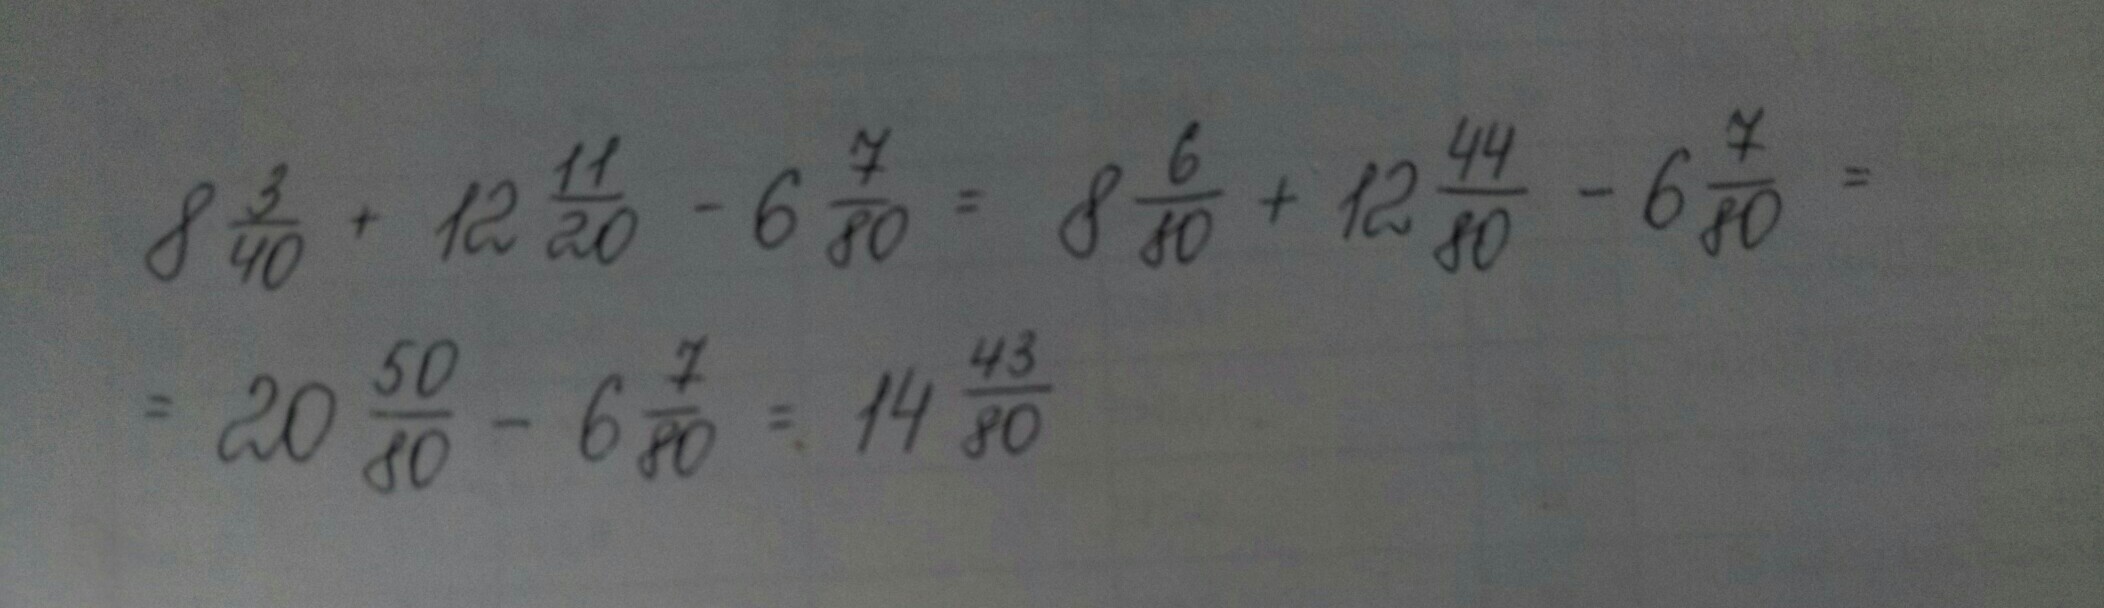 8 3/40 + 12 11/20 - 6 7/80 = 8 6/80 + 12 44/80 - 6 7/80 =
= 20 50/80 - 6 7/80 = 14 43/80